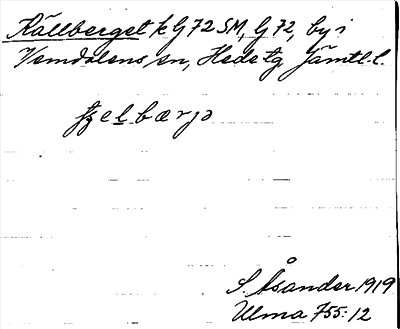 Källberget k G 72 SM, G 72, by i
Vemdalens sn, Hede tg Jämtl. l.
S. Åsander 1919
Ulma 755:12